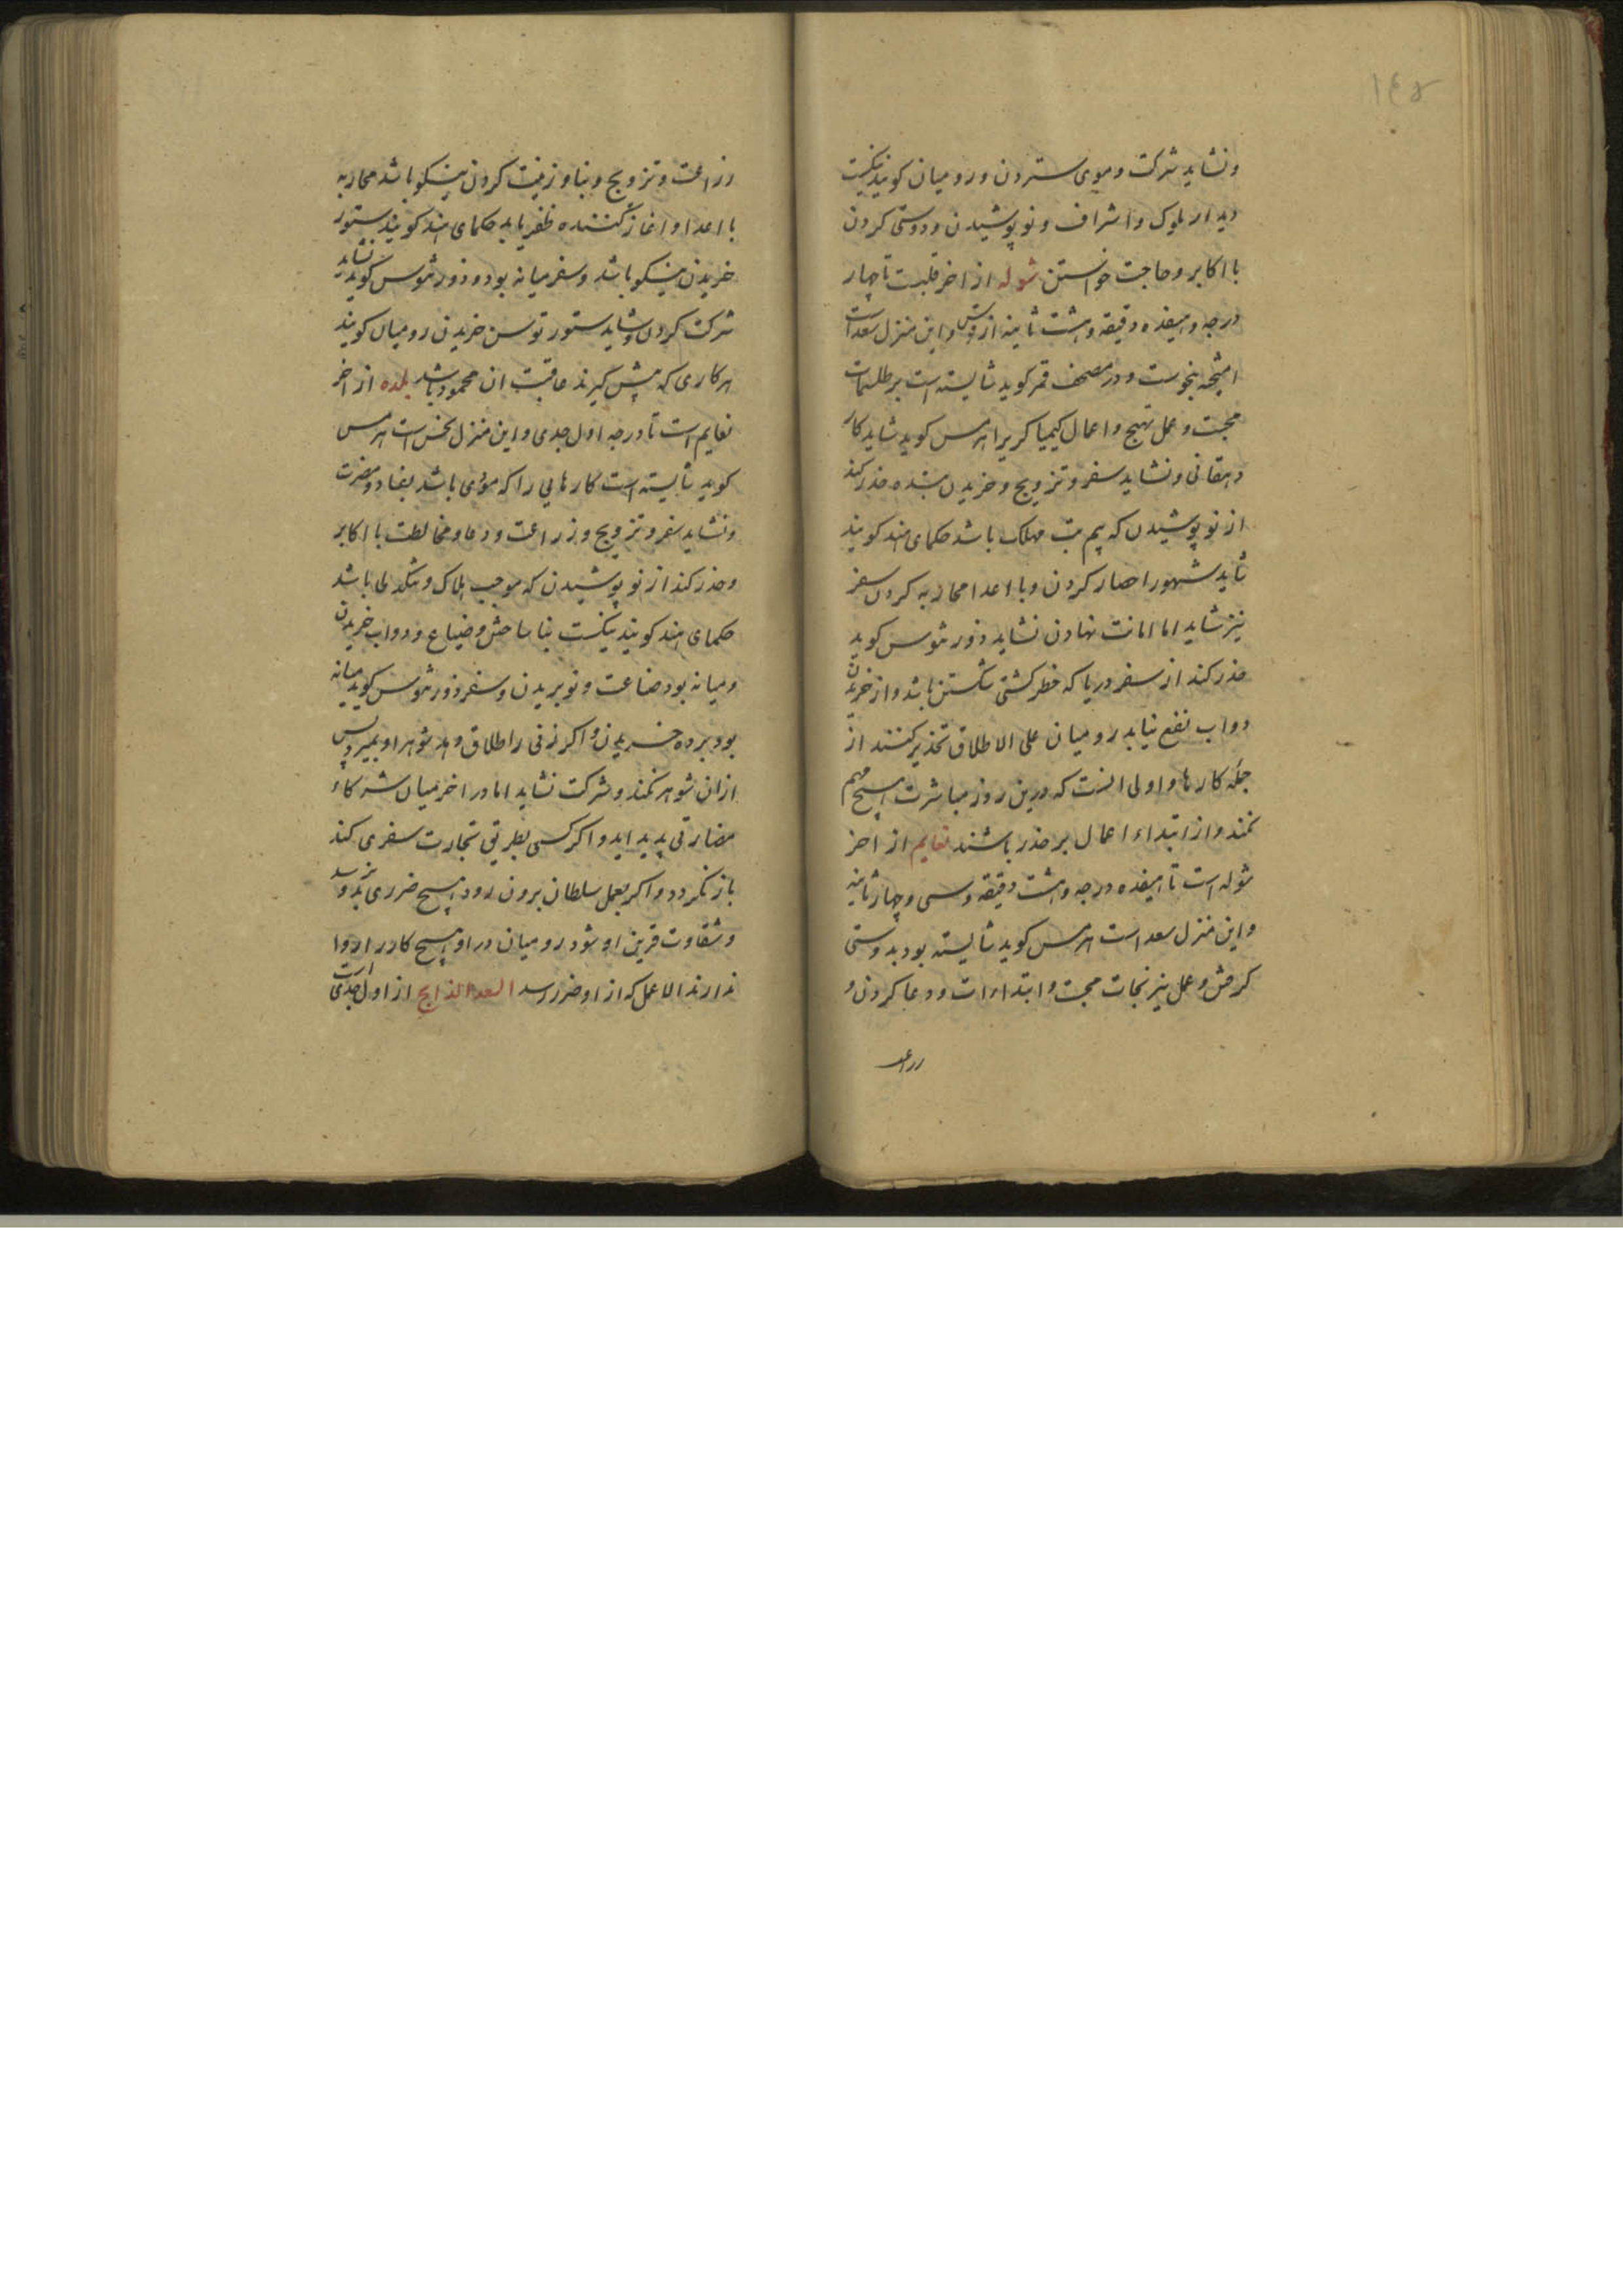 ۱۴۵
ونشاید شرکت و موی ستردن و رومیان کویند نیکست
دیدار ملوک و اشراف و نو پوشیدن و دوستی کردن
با اکابر و حاجت خواستن شوله از اخر قلبست تا چهار
درجه و هیفده دقیقه و هشت ثانیه از قوس و این منزل سعد است
امیخته بنحوست و در مصحف قمر کوید شایسته است بر طلسمات
محبت و عمل تهیج و اعمال کیمیا کریرا هرمس کوید شاید کار
دهقانی و نشاید سفر و تزویج و خریدن بنده حذر کند
از نو پوشیدن که بیم تب مهلک باشد حکمای هند کویند
شاید شهور احصار کردن و با اعدا محاربه کردن سفر
نیز شاید اما امانت نهادن نشاید ذورثیوس کوید
حذر کند از سفر دریا که خطر کشتی شکستن باشد و از خریدن
دواب نفع نیابد رومیان علی الاطلاق تحذیر کنند از
جمله کارها و اولی انست که درین روز مباشرت هیچ مهم
نکنند و از ابتداء اعمال بر حذر باشند نعایم از اخر
شوله است تا هیفده درجه و هشت دقیقه و سی و چهار ثانیه
و این منزل سعد است هرمس کوید شایسته بود بدوستی
کرفتن و عمل نیرنجات محبت و ابتداءات و دعا کردن و
زراعت
زراعت و تزویج و بنا و زینت کردن نیکو باشد محاربه
با اعدا و اغاز کننده ظفر یابد حکمای هند کویند ستور
خریدن نیکو باشد و سفر میانه بود و ذورثیوس کوید نشاید
شرکت کردن و شاید ستور توسن خریدن رومیان کویند
هر کاری که پیش کیرند عاقبت ان محمود باشد بلده از اخر
نعایم است تا درجه اول جدی و این منزل نحس است هرمس
کوید شایسته است کارهایی را که مؤدی باشد بفساد و مضرت
ونشاید سفر و تزویج و زراعت و دعا و مخالطت با اکابر
و حذر کند از نو پوشیدن که موجب هلاک و تنکدلی باشد
حکمای هند کویند نیکست بنا ساختن و ضیاع و دواب خریدن
و میانه بود صناعت و نو بریدن و سفر ذورثیوس کوید میانه
بود برده خریدن و اکر زنی را طلاق دهد شوهر او بمیرد پس
ازان شوهر نکند و شرکت نشاید اما در اخر میان شرکاء
مفارقی پدید اید و اکر کسی بطریق تجارت سفری کند
باز نکردد و اکر بعمل سلطان برون رود هیچ ضرری بدو نرسد
و شقاوت قرین او شود رومیان در او هیچ کار را روا
ندارند الا عمل که از او ضرر رسد السعد الذابح از اول جدی است